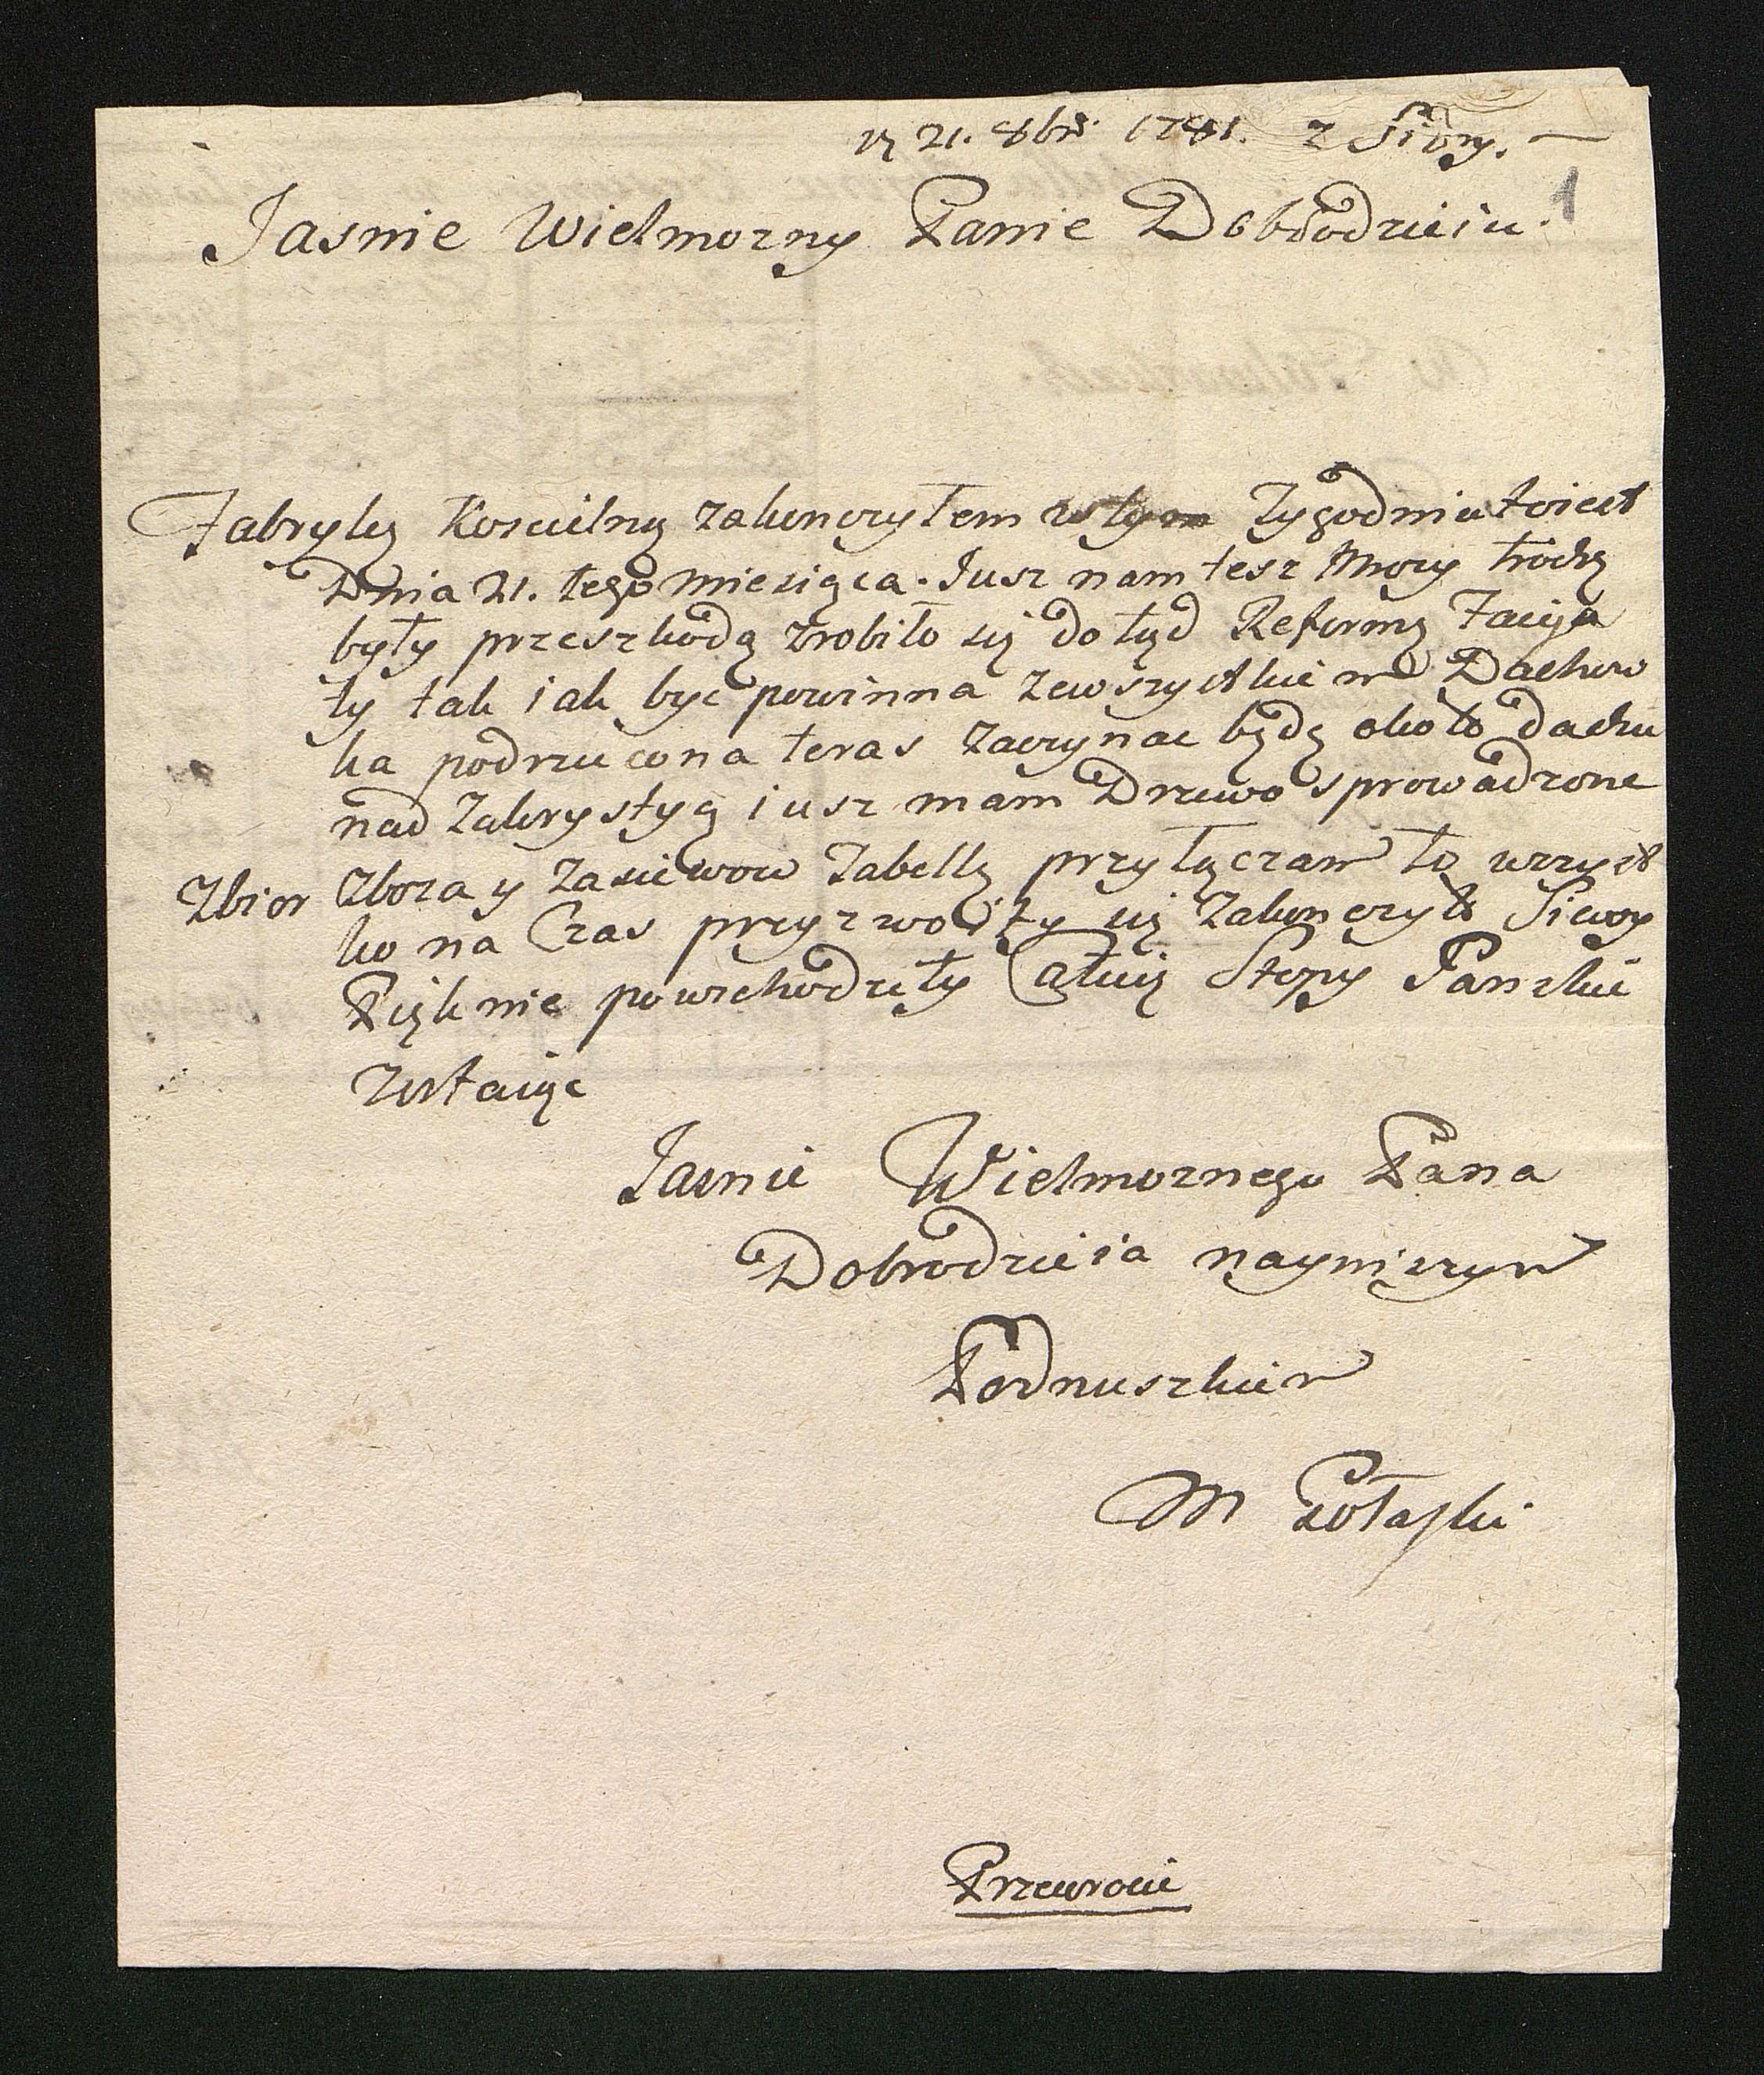 21. 8bris 1781. z Siory.
1
Jasnie Wielmozny Panie Dobrodzieiu.
Fabrykę Koscielną zakonczyłem w tym Tygodniu toiest
Dnia 21. tego Miesiąca. Jusz nam tesz Mrozy trochę
były przeszkodą zrobiło się do tąd Reformę Facya
ty tak iak byc powinna ze wszystkiem Dachow
ka podrzucona teras zaczynac będę około dachu
nad Zakrystyą iusz mam Drzewo sprowadzone
Zbior Zboza y Zasiewow Tabellę przyłączam to wszyst
ko na Czas przyzwoity się zakonczyło Siewy
Pięknie powschodziły Całuię Stopy Panskie
Zostaiąc
Jasnie Wielmoznego Pana
Dobrodzieia nayniszym
Podnuszkiem
M Gołaski
Przewroci